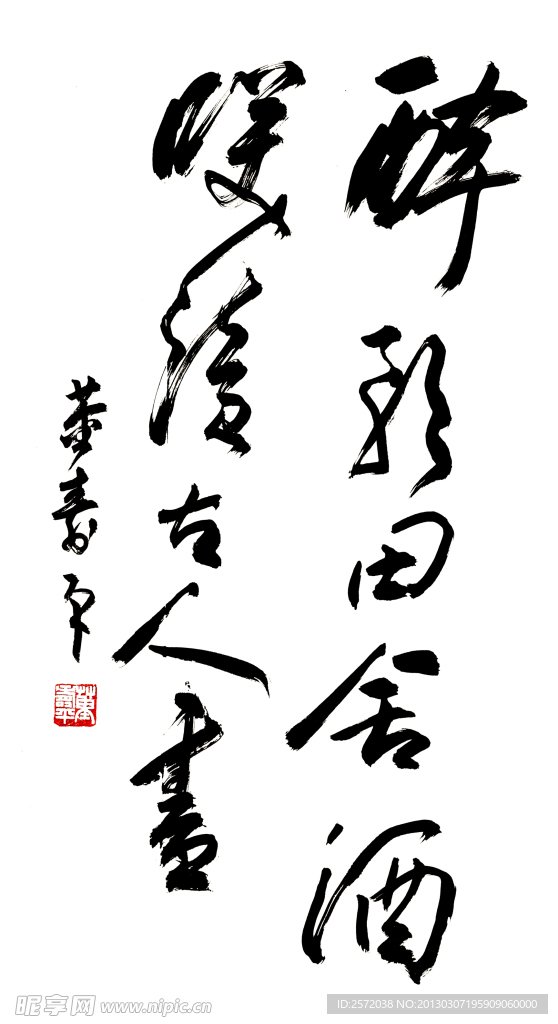 醉歌田舍酒
咲讀古人書
董壽平
董壽平
昵享网 www.nipic.cn
ID:2572038 NO:20130307195909060000